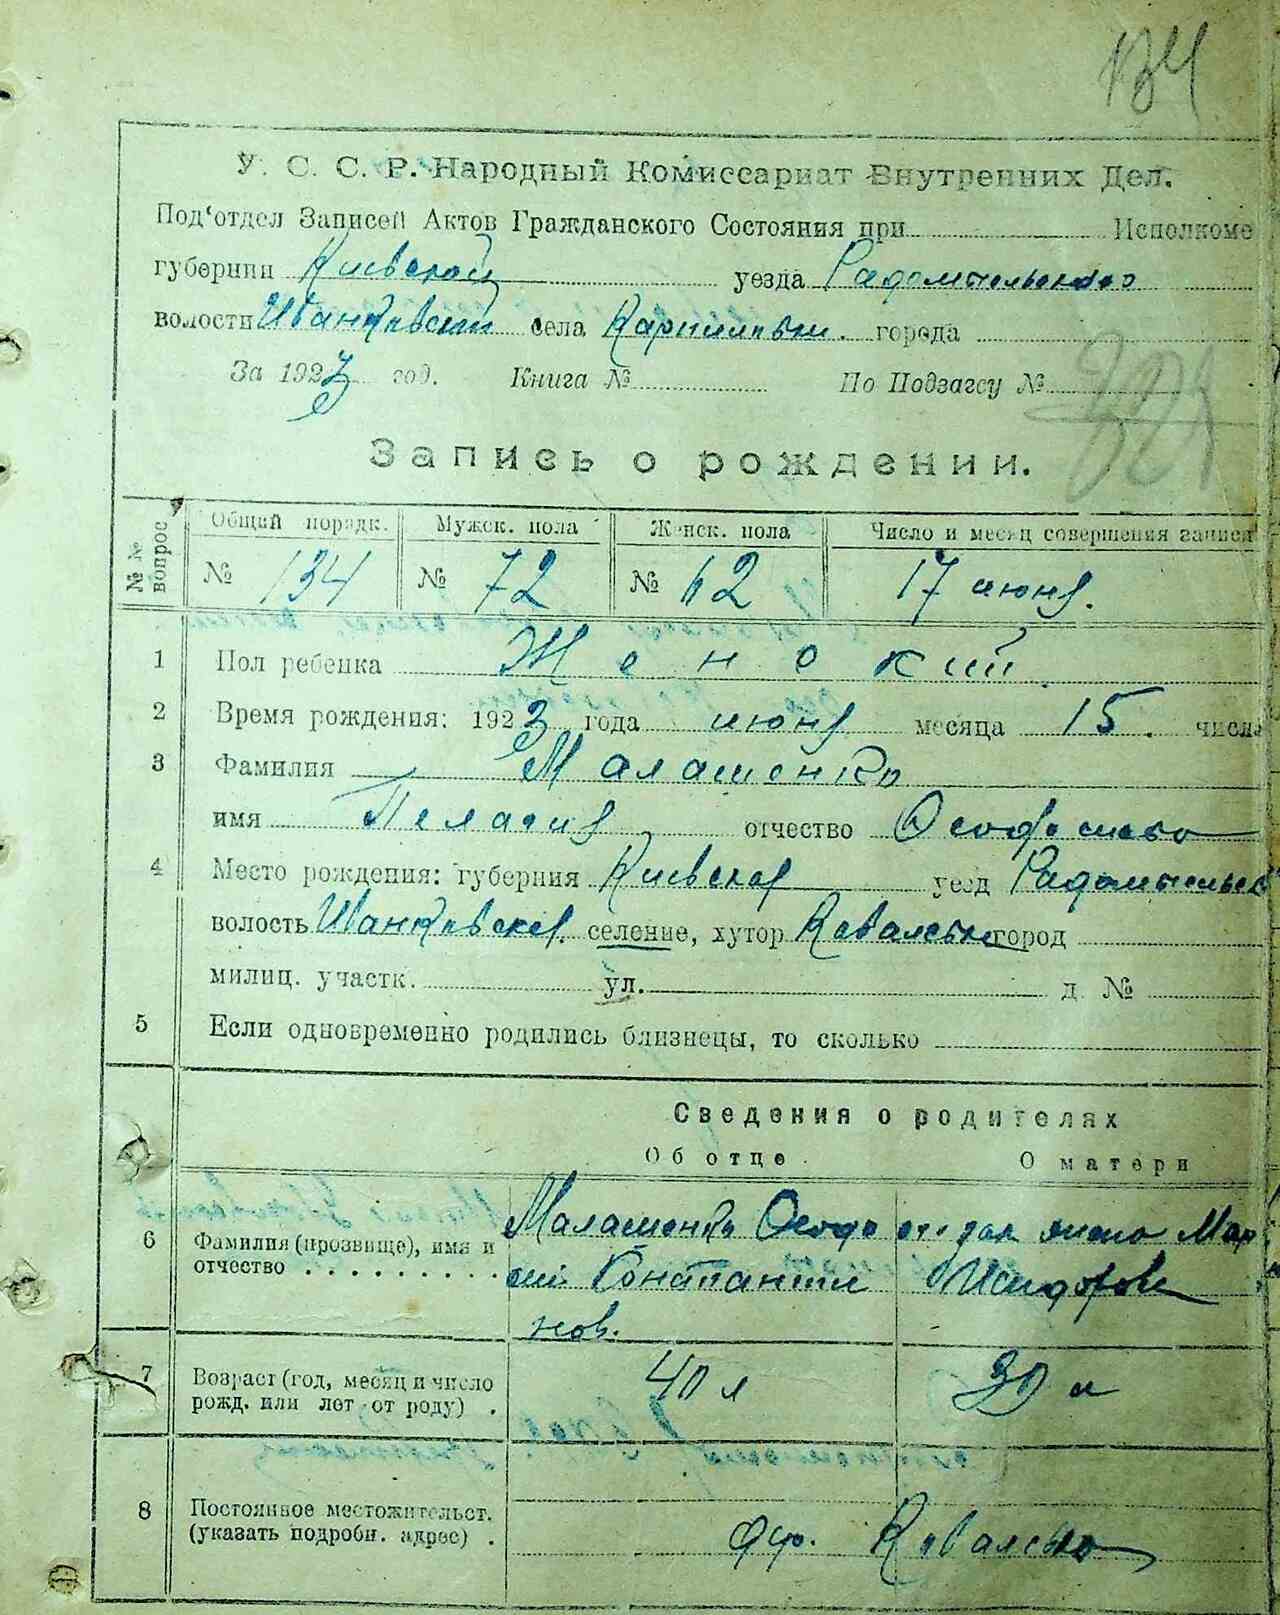 134
У. С. С. Р. Народный Комиссариат Внутренних Дел.
Под'отдел Записей Актов Гражданского Состояния при Исполкоме
губернии Киевской уезда Радомысльского
волости Иванковской села Карпиловки. города
За 1923 год. Книга № По Подзагсу №
Запись о рождении.
№ № вопрос
Общий порядк. Мужск. пола Женск. пола Число и месяц совершения записи
№ 134 № 72 № 62 17 июня.
1 Пол ребенка Женский
2 Время рождения: 1923 года июня месяца 15. числа
3 Фамилия Малашенко
имя Пелагия отчество
4 Место рождения: губерния Киевская уезд Радомысльск
волость Иванковская селение, хутор город
милиц. участк. ул. д. №
5 Если одновременно родились близнецы, то сколько
Сведения о родителях
Об отце. О матери
6 Фамилия (прозвище), имя и
отчество
Малашенко
Константи
нов.
7 Возраст (год, месяц и число
рожд. или лет от роду) .
40 л 30 л
8 Постоянное местожительст.
(указать подробн. адрес) .